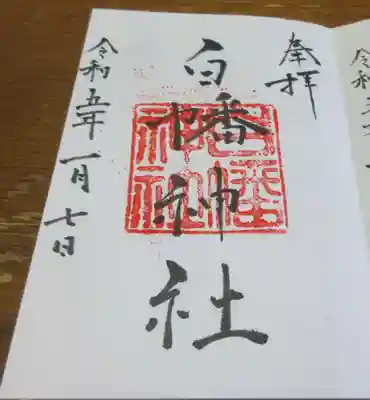 奉拝
白幡神社
白幡神社
令和五年一月七日
令和五